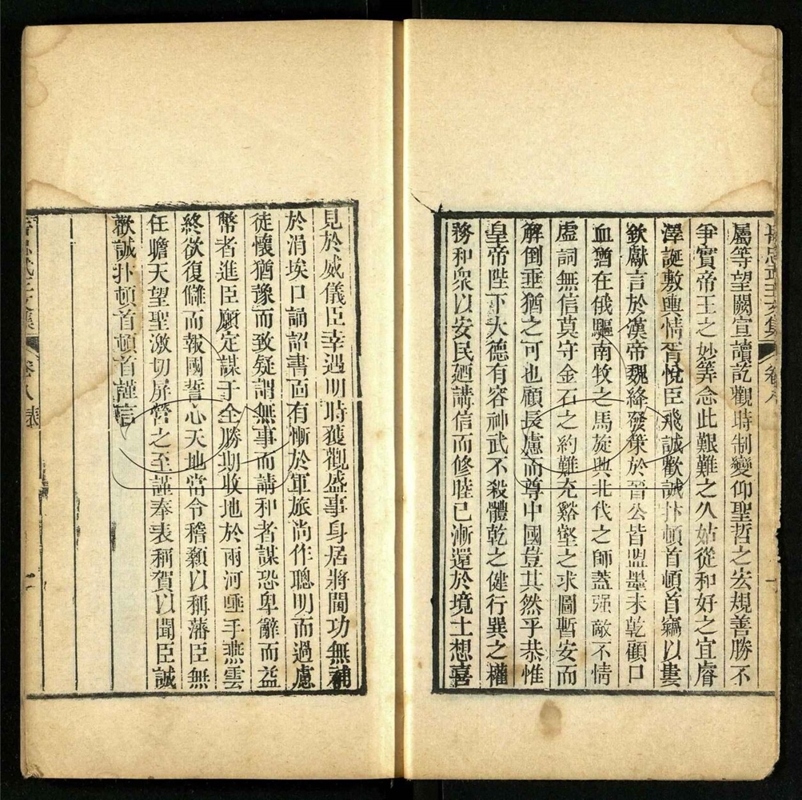 岳忠武王文集 卷八
屬等望闕宣讀訖觀時制變仰聖哲之宏規善勝不
爭實帝王之妙筭念此艱難之久姑從和好之宜睿
澤誕敷輿情胥悅臣飛誠歡誠抃頓首頓首竊以婁
欽獻言於漢帝魏絳發策於晉公皆盟墨未乾顧口
血猶在俄驅南牧之馬旋興北伐之師蓋强敵不情
虛詞無信莫守金石之約難充谿壑之求圖暫安而
解倒垂猶之可也顧長慮而尊中國豈其然乎恭惟
皇帝陛下大德有容神武不殺體乾之健行巽之權
務和衆以安民廼講信而修睦已漸還於境土想喜
見於威儀臣幸遇明時獲觀盛事身居將閫功無補
於涓埃口誦詔書面有慚於軍旅尚作聰明而過慮
徒懷猶豫而致疑謂無事而請和者謀恐卑辭而益
幣者進臣願定謀于全勝期收地於兩河唾手燕雲
終欲復讎而報國誓心天地當令稽顙以稱藩臣無
任瞻天望聖激切屏營之至謹奉表稱賀以聞臣誠
歡誠抃頓首頓首謹言
岳忠武王文集 卷八 表